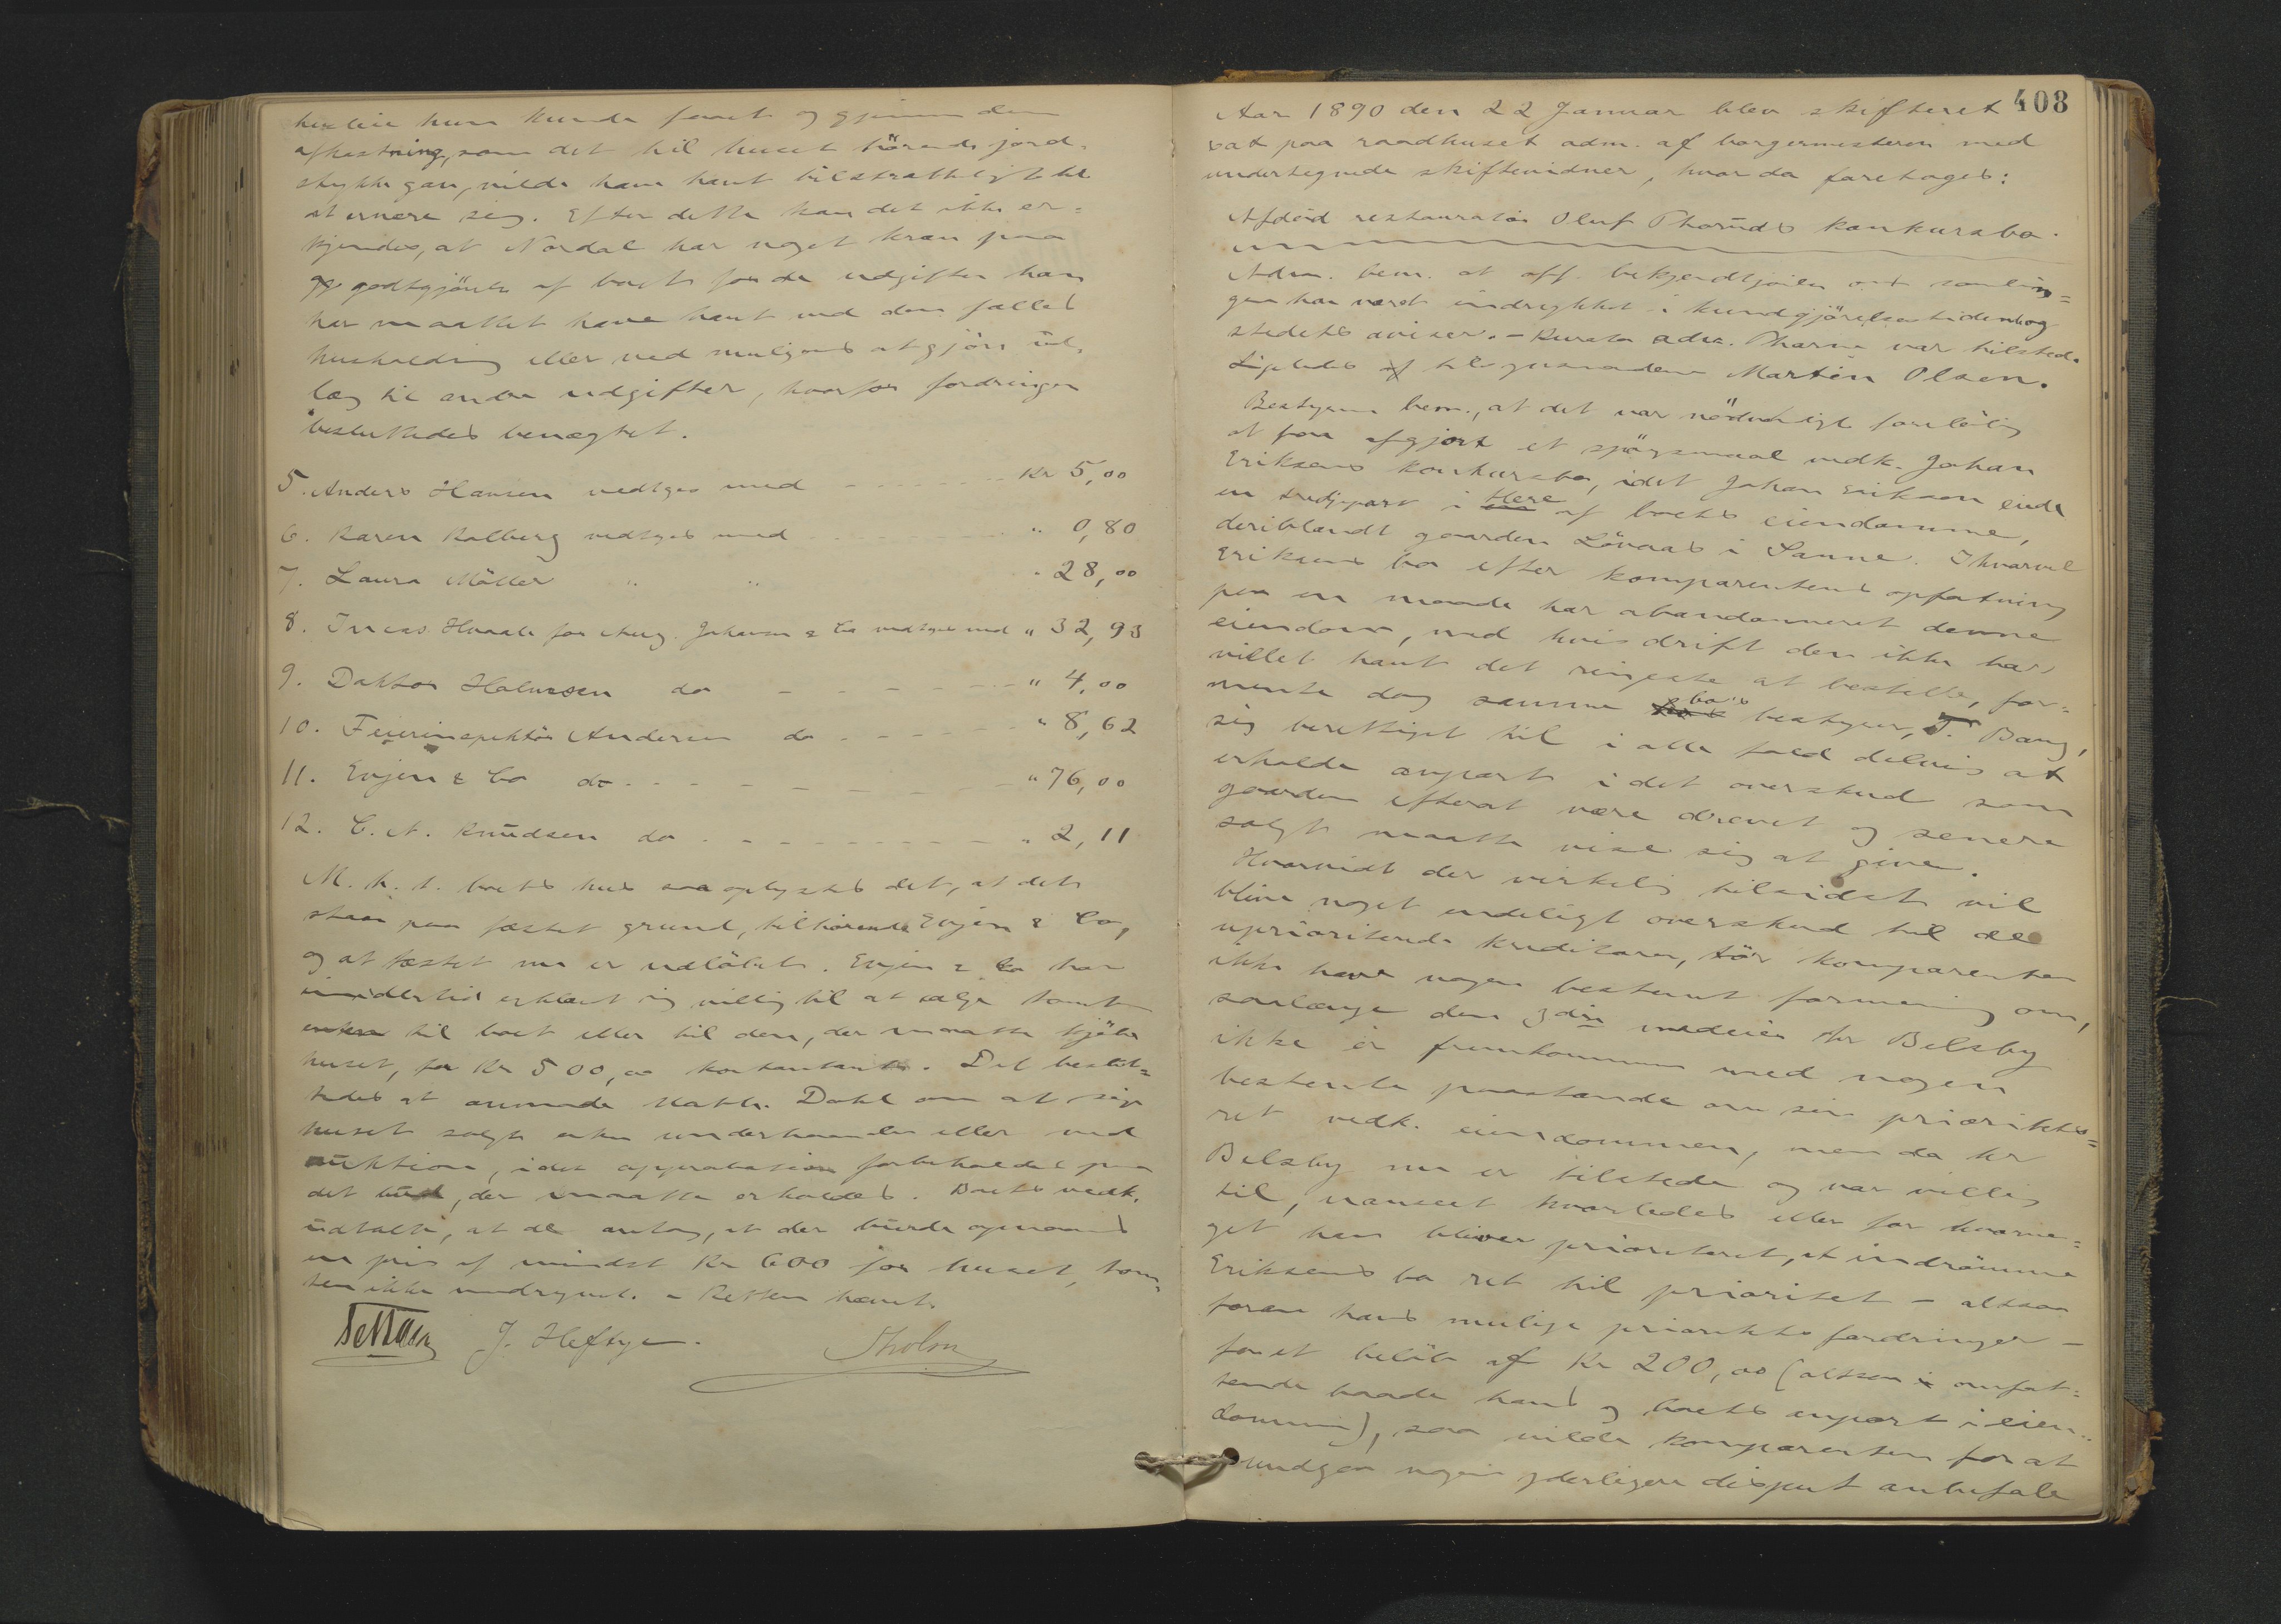 husleie hun kunde faaet og gjennem den
afkastning, som det til huset hörende jord-
stykke gav, vilde have havt tilstrækkeligt til
at ernære sig. Efter dette kan det ikke er=
kjendes, at Nordal har noget krav paa
godtgjörelse af boet for de udgifter han
har maattet have havt ved den fælles
husholdning eller ved muligens at gjöre ud-
læg til andre udgifter, hvorfor fordringen
besluttedes benægtet.
5. Anders Hansen vedtages med - - - - Kr 5,00
6. Karen Kalberg vedtages med - - - - " 0,80
7. Laura Möller " " " 28,00
8. Incas. Hvaale for Aug. Johansen & Co vedtages med " 32,93
9. Doktor Halvorsen do - - - - " 4,00
10. Feierinspektör Andersen do - - - - " 8,62
11. Evjen & Co do - - - - " 76,00
12. C. N. Knudsen do - - - - " 2,11
M. h. t. boets hus saa oplystes det, at det
staar paa fæstet grund, tilhörende Evjen & Co,
og at fæstet nu er udlöbet. Evjen & Co har
imidlertid erklæret sig villig til at sælge tomten
enten til boet eller til den, der maatte kjöbe
huset, for Kr 500,00 kontant. Det beslut=
tedes at anmode Dahl om at söge
huset solgt enten underhaanden eller ved
auktion, idet approbation forbeholdes paa
det bud, der maatte erholdes. Boets vedk.
udtalte, at de antog, at der burde opnaaes
en pris af mindst Kr 600 for huset, tom-
ten ikke medregnet. - Retten hævet.
J. Heftye. Sholm
408
Aar 1890 den 22 Januar blev skifteret
sat paa raadhuset adm. af borgermesteren med
undertegnede skiftevidner, hvor da foretoges:
Afdöd restauratör Oluf Thoruds konkursbo.
Adm. bem. at off. bekjendtgjörelse om samlin=
gen har været indrykket i kundgjörelsestidende og
stedets aviser. - Kurator adv. Tharm var tilstede.
Ligeledes tilsynsmanden Martin Olsen.
Bestyreren bem., at det var nödvendigt foreløbig
at faa afgjort et spörgsmaal vedk. Johan
Eriksens konkursbo, idet Johan Eriksen eiede
en tredjepart i flere af boets eiendomme,
deriblandt gaarden Lövaas i Sanne. Ihvorvel
Eriksens bo efter komparentens opfatning
paa en maade har abandonneret denne
eiendom, med hvis drift den ikke har
villet havt det ringeste at bestille, for=
mente dog samme bo's bestyrer, T. Bang,
sig berettiget til i alle fald delvis at
erholde anpart i det overskud som
gaarden efterat være drevet og senere
solgt maatte vise sig at give.
Hvorvidt der virkelig tilsidst vil
blive noget endeligt overskud til de
uprioriterede kreditorer, tör komparenten
ikke have nogen bestemt formening om,
saalænge den 3die medeier Hr Belsby
ikke er fremkommen med nogen
bestemte paastande om sin prioritets=
ret vedk. eiendommen, men da hr
Belsby nu er tilstede og var villig
til, uanseet hvorledes eller for hvorme=
get han bliver prioriteret, at indrömme
Eriksens bo ret til prioritet - altsaa
foran hans mulige prioritets fordringer -
for et belöb af Kr 200,00 (altsaa omfat=
tende baade hans og boets anpart i eien-
dommen), saa vilde komparenten for at
undgaa nogen yderligere disput anbefale